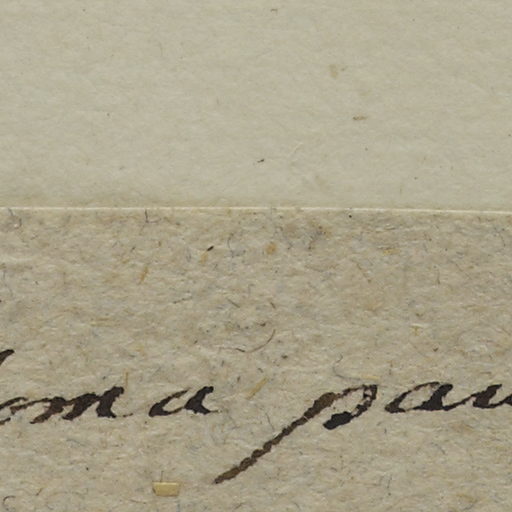 oma pau